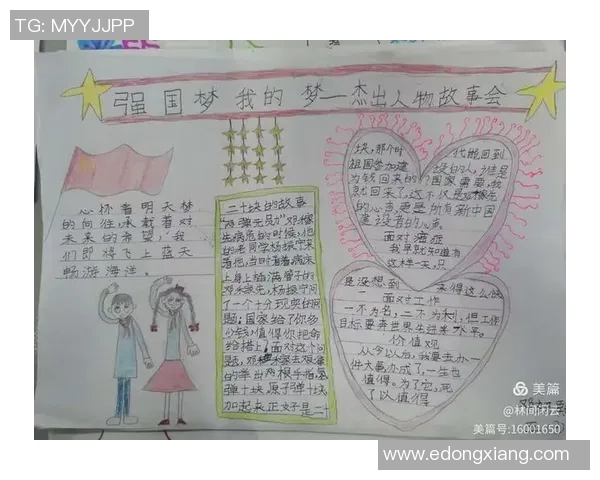 TG: MYYJJPP
强国梦 我的 梦—杰出人物故事会
心怀着明天梦
的向往,承载着对
未来的希望,我
们即将飞上蓝天
畅游海洋。
二十块的故事
"两弹元勋"邓稼
先病危的时候,他
的老同学杨振宁来
看他,当时看着病床
上身上插满管子的
邓稼先,杨振宁问
了一个十分现实的问
题:国家给了你多
少钱,值得你把命
给搭上,面对这个问
题,
的举出两根手指氢
弹十块,原子弹十块
加起来正好是二十
块,那个时代能回到
祖国参加建设的人,谁是
为钱回来的?国家需要,我
就回来了,这不仅是邓稼先
的心声更是所有新中国
建设者的心声
面对癌症
我早就知道有
这样一天,只
是没想到 来得这么快
面对工作
一不为名,二不为利,但工作
目标要奔世界先进水平。
价值观
从今以后,我要去办一
件大事,办成了,一生也
值得。为了它,死
了以值得
美篇
@林间闲云
美篇号:16001650
www.edongxiang.com